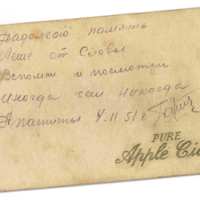 На долгую память
Леше от Слави
Вспомни и посмотри
иногда чем никогда
Апатиты 4.II.51г
PURE
Apple Ci